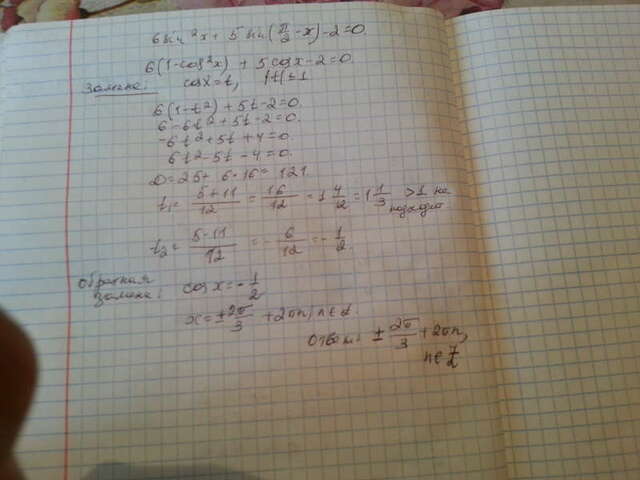 6sin²x + 5sin(π/2 - x) - 2 = 0.
6(1 - cos²x) + 5cosx - 2 = 0.
Замена: cosx = t, |t| ≤ 1
6(1 - t²) + 5t - 2 = 0.
6 - 6t² + 5t - 2 = 0.
-6t² + 5t + 4 = 0.
6t² - 5t - 4 = 0.
D = 25 + 6·16 = 121
t₁ = (5+11)/12 = 16/12 = 1 4/2 = 1 1/3 > 1 не подходит
t₂ = (5-11)/12 = -6/12 = -1/2.
Обратная замена: cosx = -1/2
x = ±2π/3 + 2πn, n∈Z.
Ответ: ±2π/3 + 2πn,
n∈Z